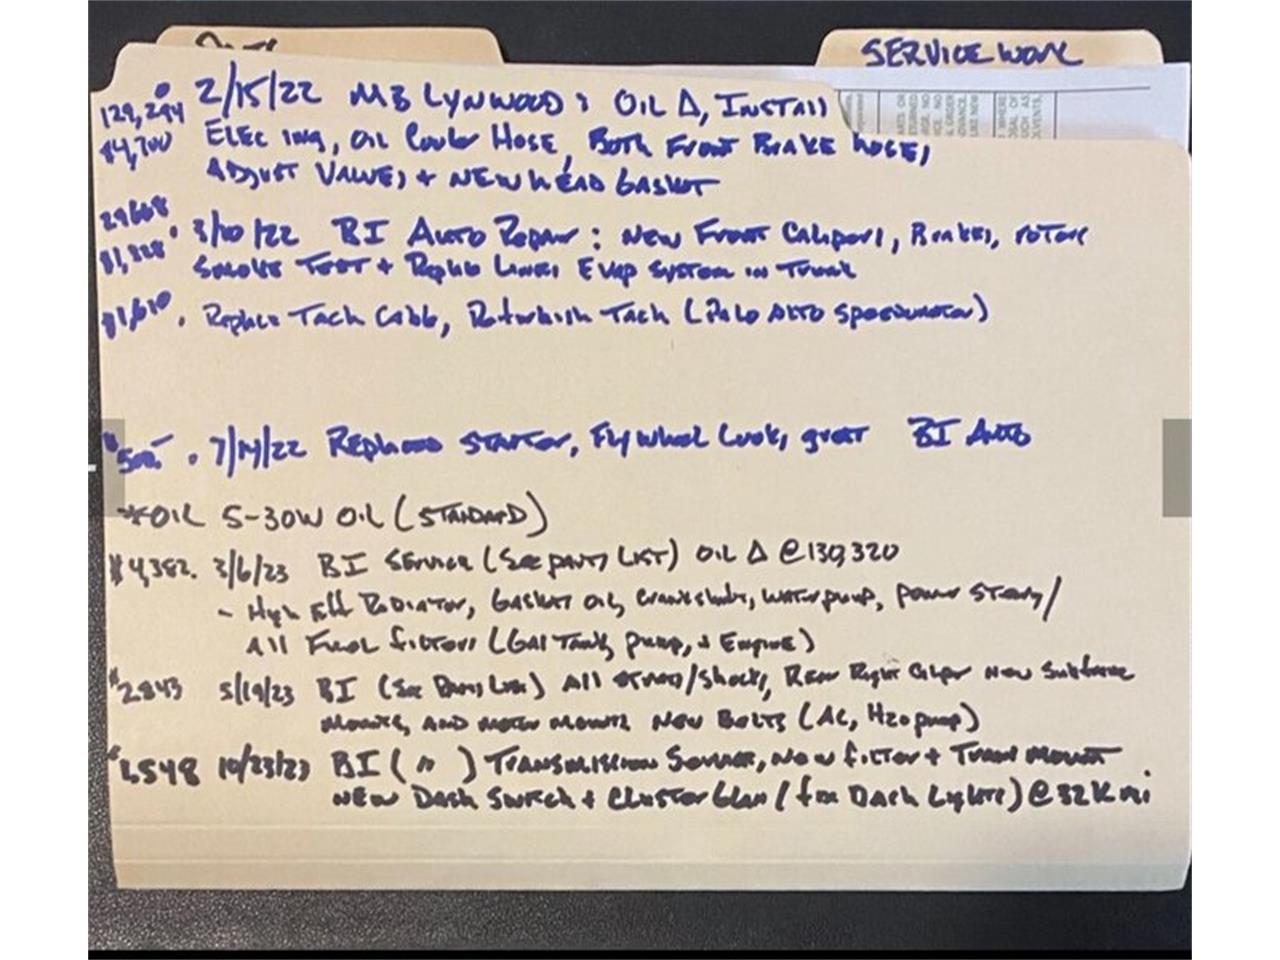 SERVICE WORK
129,294 2/15/22 MB LYNWOOD: OIL Δ, INSTALL
$4,700 ELEC ING, OIL Cooler HOSE, BOTH FRONT BRAKE HOSES,
ADJUST VALVES + NEW HEAD GASKET
29668 3/10/22 BI AUTO Repair: NEW FRONT CALIPERS, BrakES, rotors
$1,828 SMOKE TEST + Replace Lines EVAP SYSTEM IN Trunk
$1,610 Replace Tach Cable, Refurbish Tach (Palo ALTO Speedometer)
$500 7/14/22 REPlaced STARTER, Flywheel Looks great BI AUTO
*OIL 5-30W OIL (STANDARD)
$4,382. 3/6/23 BI SERVICE (See parts LIST) OIL Δ @130,320
- High Eff RADIATOR, GASKET OIL, Crankshaft, WATER pump, power Steering/
All Fuel filters (GAS Tank, pump, + Engine)
$2843 5/19/23 BI (See Parts List) All STruts/Shocks, REAR Right Caliper New Subframe
Mounts, AND MOTOR MOUNTS NEW BOLTS (AC, H2O pump)
10/23/23 BI ( " ) TRANSMISSION Service, New filter + Trans Mount
NEW DASH SWITCH + CLUSTER Glass (for Dash Lights) @ 32K mi